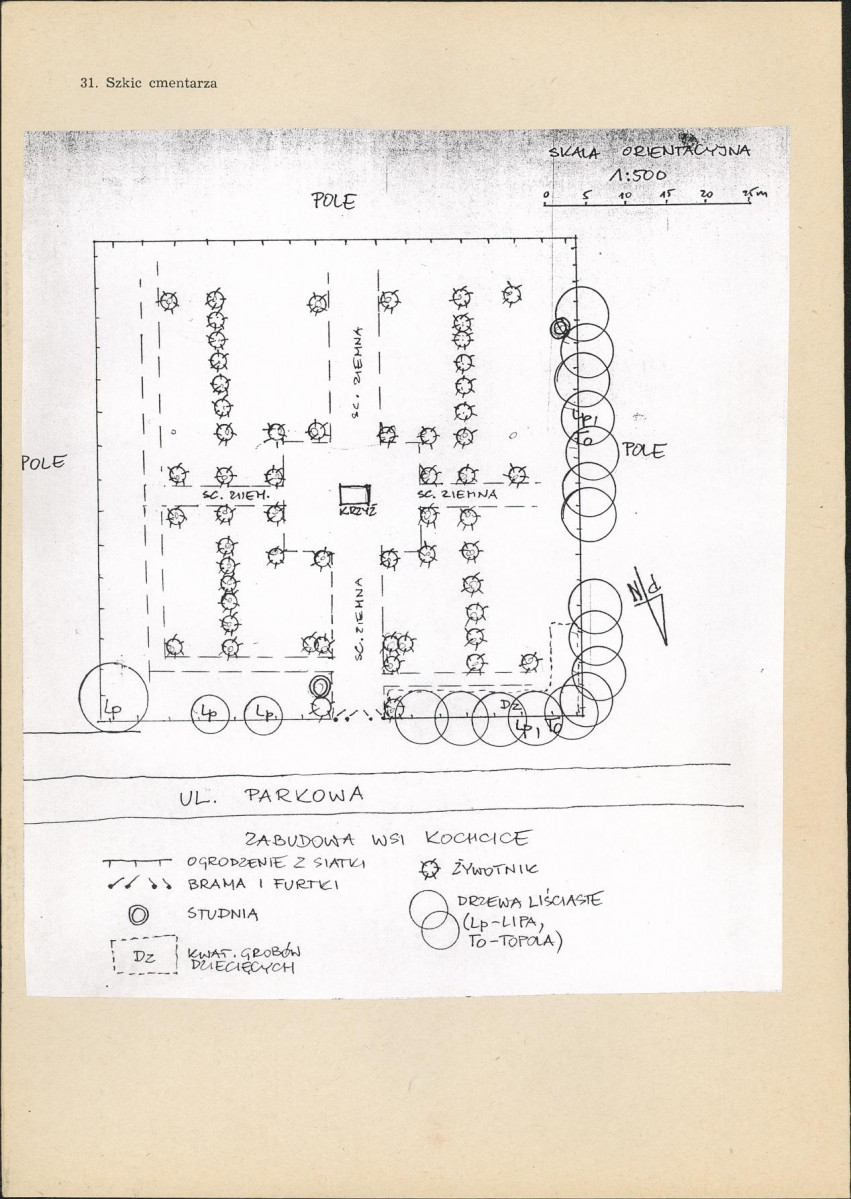 31. Szkic cmentarza
SKALA ORIENTACYJNA
1:500
0 5 10 15 20 25m
POLE
ŚC. ZIEMNA
Lp,
To
POLE
POLE
ŚC. ZIEM.
ŚC. ZIEMNA
KRZYŻ
ŚC. ZIEMNA
Lp
Lp
Lp
Dz
Lp, To
UL. PARKOWA
ZABUDOWA WSI KOCHCICE
OGRODZENIE Z SIATKI
BRAMA I FURTKI
STUDNIA
Dz
KWAT. GROBÓW
DZIECIĘCYCH
ŻYWOTNIK
DRZEWA LIŚCIASTE
(Lp-LIPA,
To-TOPOLA)